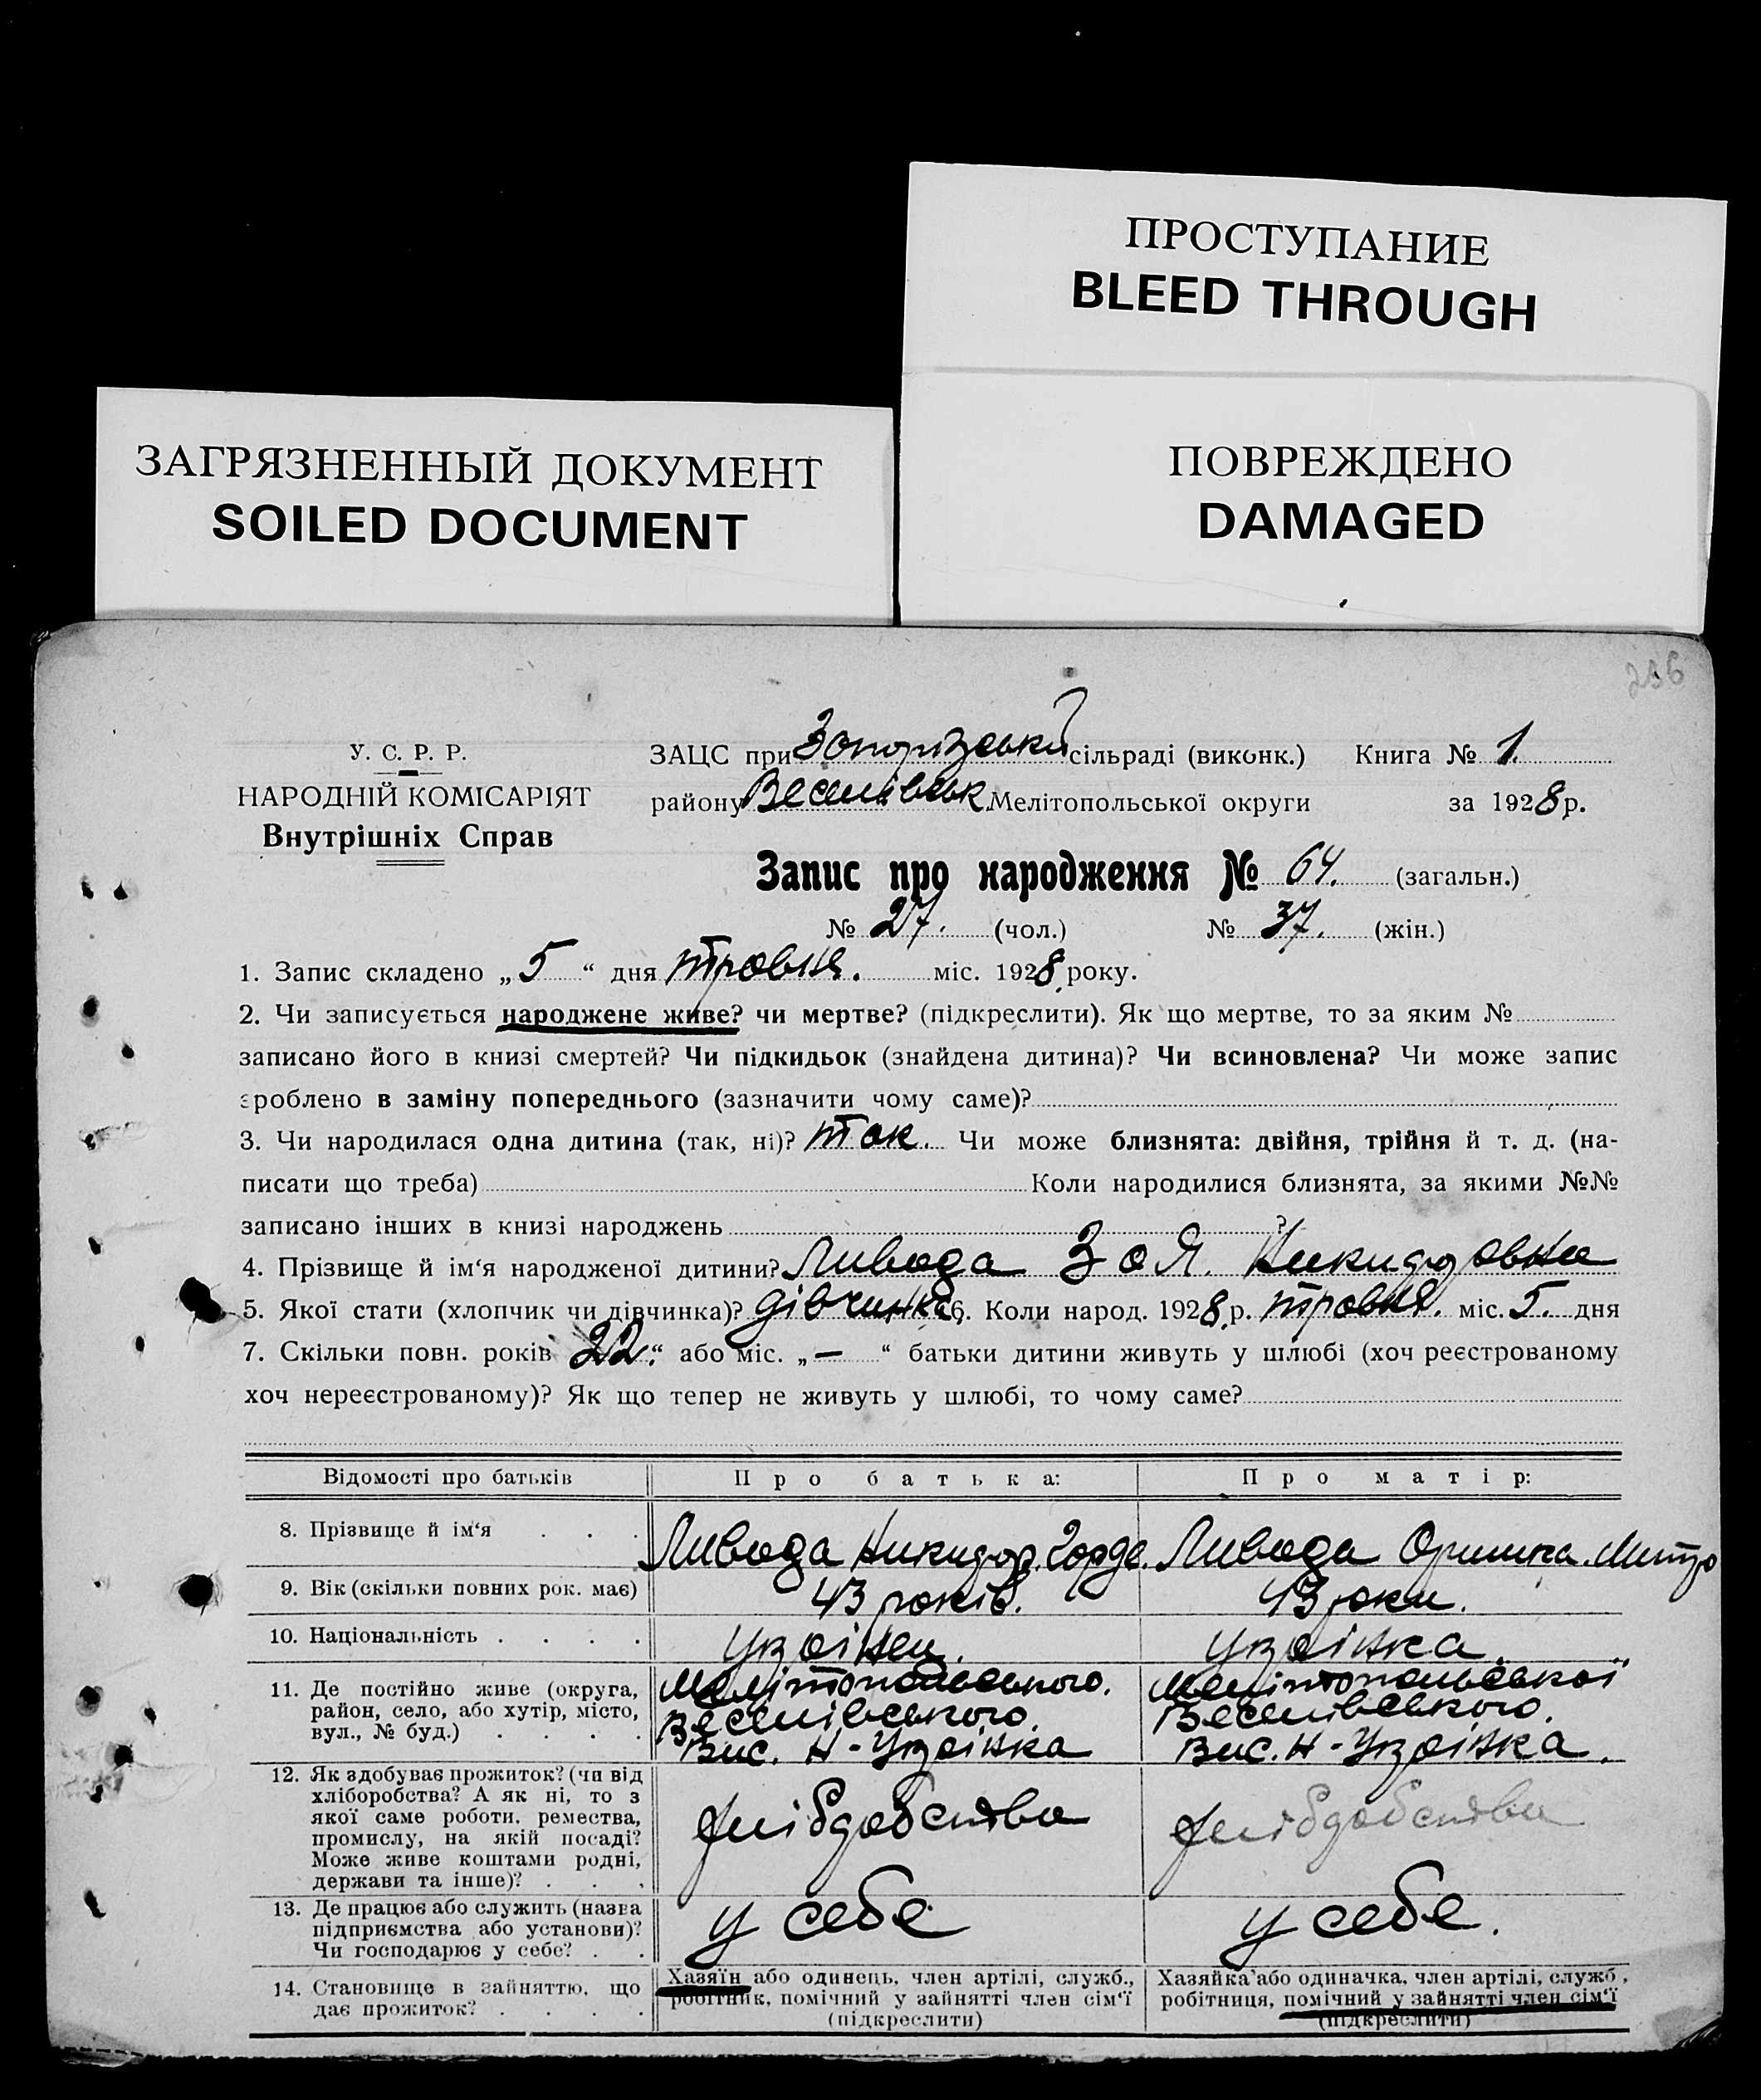 ПРОСТУПАНИЕ
BLEED THROUGH
ПОВРЕЖДЕНО
DAMAGED
ЗАГРЯЗНЕННЫЙ ДОКУМЕНТ
SOILED DOCUMENT
У. С. Р. Р.
НАРОДНІЙ КОМІСАРІЯТ
Внутрішніх Справ
ЗАЦС при Запорізській сільраді (виконк.) Книга № 1.
району Веселівськ. Мелітопольської округи за 1928 р.
Запис про народження № 64. (загальн.)
№ 27. (чол.) № 37. (жін.)
1. Запис складено „5“ дня травня. міс. 1928 року.
2. Чи записується народжене живе? чи мертве? (підкреслити). Як що мертве, то за яким №
записано його в книзі смертей? Чи підкидьок (знайдена дитина)? Чи всиновлена? Чи може запис
зроблено в заміну попереднього (зазначити чому саме)?
3. Чи народилася одна дитина (так, ні)? так. Чи може близнята: двійня, трійня й т. д. (на-
писати що треба) Коли народилися близнята, за якими №№
записано інших в книзі народжень ?
4. Прізвище й ім‘я народженої дитини? Ливада Зоя. Никифоовна
5. Якої стати (хлопчик чи дівчинка)? дівчинка 6. Коли народ. 1928 р. травня. міс. 5. дня
7. Скільки повн. років 22.“ або міс. „—“ батьки дитини живуть у шлюбі (хоч реєстрованому
хоч нереєстрованому)? Як що тепер не живуть у шлюбі, то чому саме?
Відомості про батьків Про батька: Про матір:
8. Прізвище й ім‘я Ливада Никифор. Горде. Ливада Оришка. Митро
9. Вік (скільки повних рок. має) 43 років. 43 роки.
10. Національність Українец. Українка
11. Де постійно живе (округа,
район, село, або хутір, місто,
вул., № буд.)
Мелітопольського.
Веселівського.
Вис. Н-Українка
Мелітопольської
Веселівського.
Вис. Н-Українка.
12. Як здобуває прожиток? (чи від
хліборобства? А як ні, то з
якої саме роботи, ремества,
промислу, на якій посаді?
Може живе коштами родні,
держави та інше)?
13. Де працює або служить (назва
підприємства або установи)?
Чи господарює у себе?
у себе
у себе.
14. Становище в зайняттю, що
дає прожиток?
Хазяїн або одинець, член артілі, служб.,
робітник, помічний у зайнятті член сім‘ї
(підкреслити)
Хазяйка або одиначка, член артілі, служб.,
робітниця, помічний у зайнятті член сім‘ї
(підкреслити)